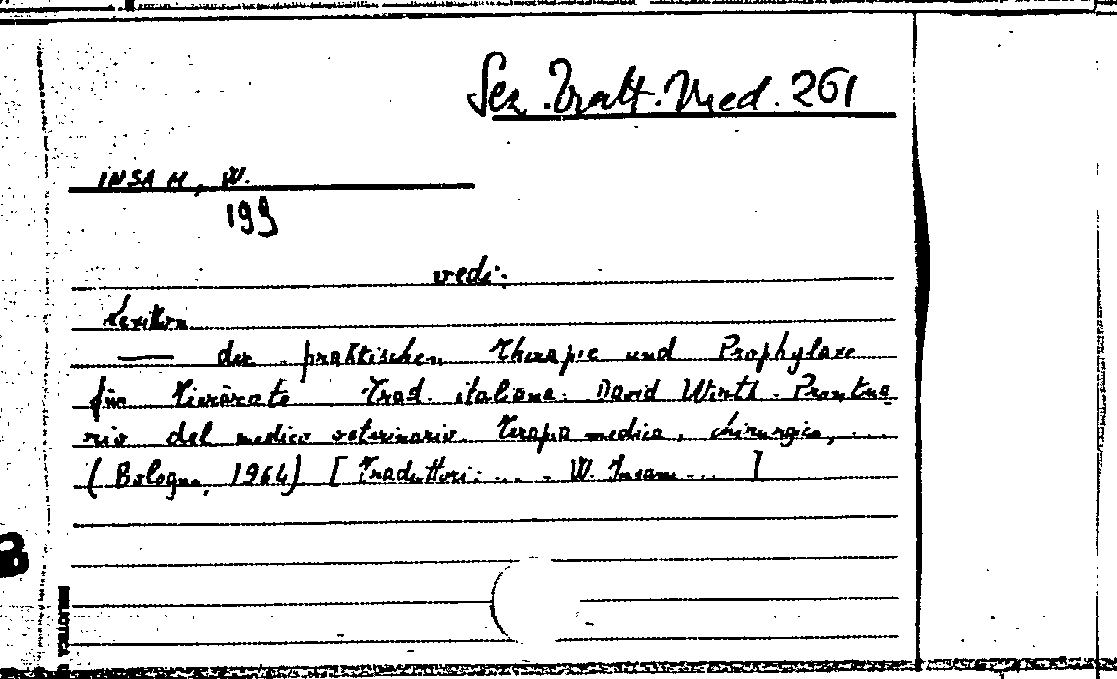 Sez. Tratt. Med. 261
INSAM, W.
199
vedi:
Lexikon
—— der praktischen Therapie und Prophylaxe
für Tierärzte Trad. italiana. David Wirth. Prontua
rio del medico veterinario. Terapia medica, chirurgica, ...
(Bologna, 1964) [Traduttori: ... . W. Insam ... ]
BIBLIOTECA